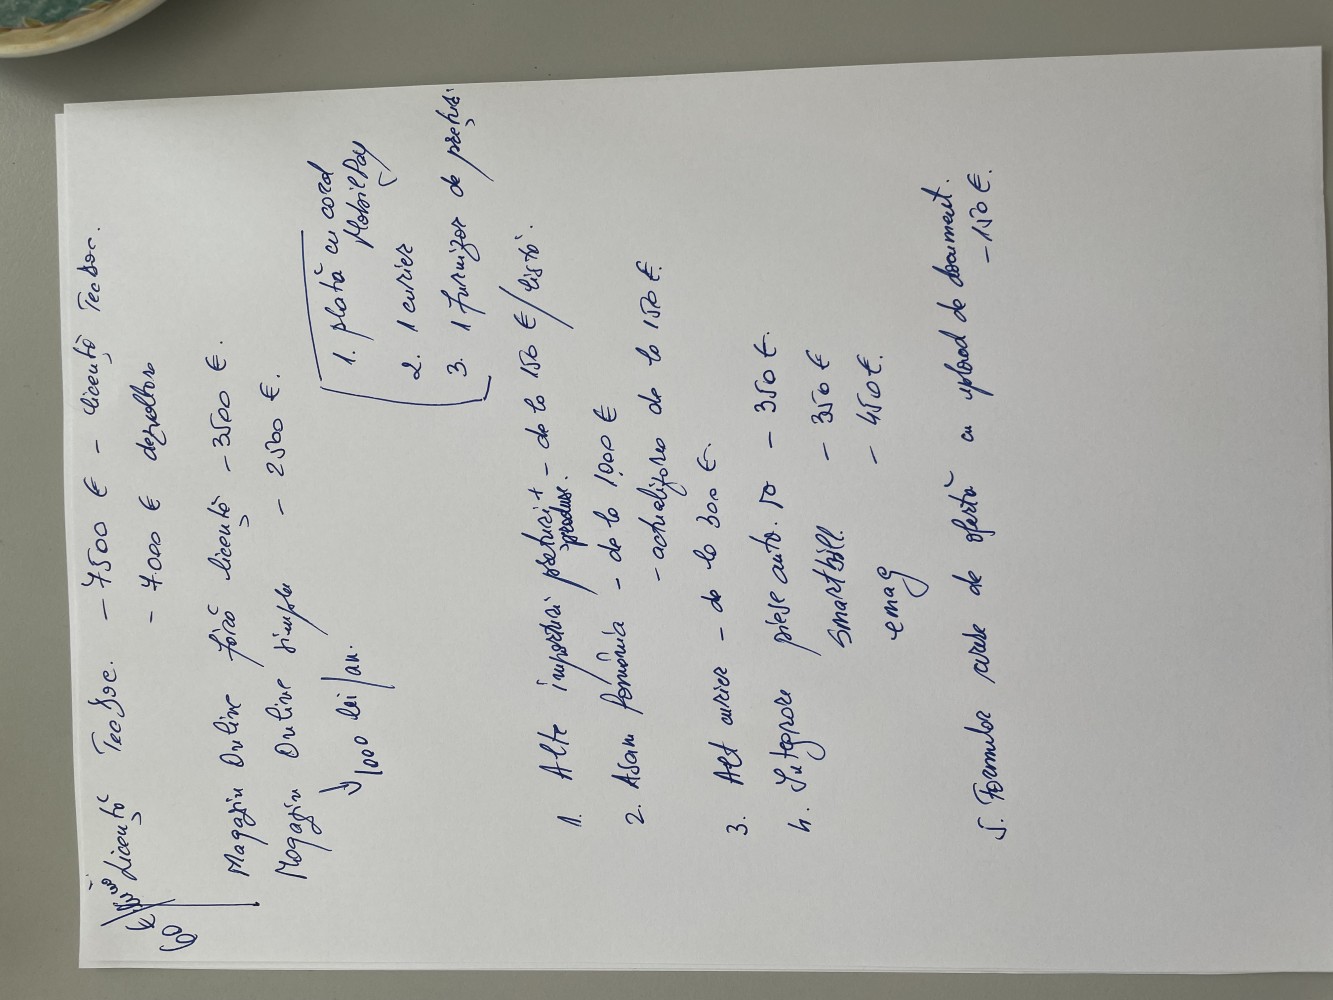 Licență TecDoc. - 7500 € - licență TecDoc.
- 7000 € dezvoltare
60
Magazin Online fără licență - 3500 €.
Magazin Online simplu - 2500 €.
↳ 100 lei/an.
1. plată cu card
MobilPay
2. 1 curier
3. 1 furnizor de prețuri
1. Alte importuri prețuri + produse. - de la 150 €/listă.
2. Asam România - de la 1000 €
- actualizarea de la 150 €.
3. Alt curier - de la 300 €.
4. Integrare piese auto.ro - 350 €.
smartbill - 350 €
emag - 450 €.
5. Formular cerere de ofertă cu upload de document.
- 150 €.